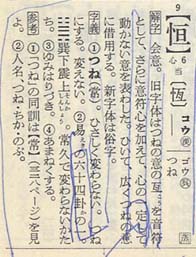 9
【恒】
心6
【恆】
当
コウ㊊ ゴウ㊋
つね
解字 会意。旧字体はつねの意の亙を音符
として、さらに意符心を加えて、心の一定して
動かない意を表わした。ひいて、広くつねの意
に借用する。新字体は俗字。
字義 ①つね(常)ひさしく変わらない。つね
にする。変えない。②易の六十四卦の一。
巽下震上 常久で変わらないかた
ち。③ゆみはりづき。④あまねくする。
参考 ①「つね」の同訓は【常】(三三八ページ)を見
よ。②人名、つね・ちか・のぶ。